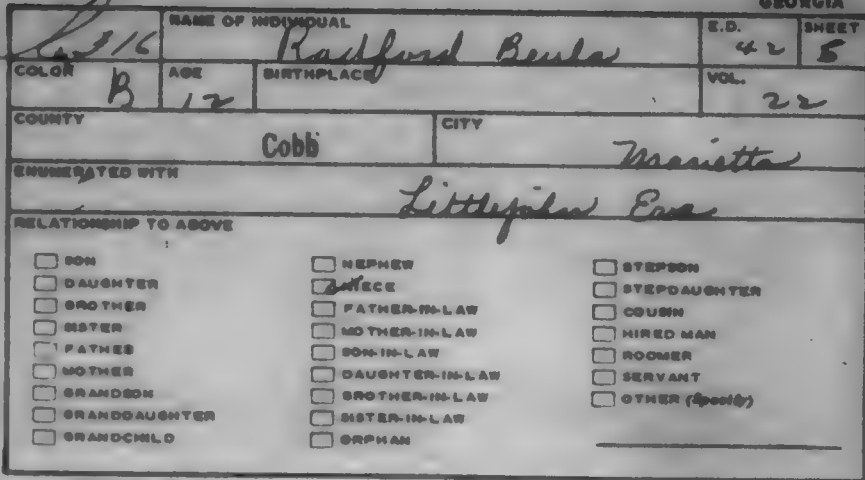 GEORGIA
316
NAME OF INDIVIDUAL
Radford Beula
E.D.
42
SHEET
5
COLOR
B
AGE
12
BIRTHPLACE
VOL.
22
COUNTY
Cobb
CITY
Marietta
ENUMERATED WITH
Littlejohn Eva
RELATIONSHIP TO ABOVE
SON
DAUGHTER
BROTHER
SISTER
FATHER
MOTHER
GRANDSON
GRANDDAUGHTER
GRANDCHILD
NEPHEW
NIECE
FATHER-IN-LAW
MOTHER-IN-LAW
SON-IN-LAW
DAUGHTER-IN-LAW
BROTHER-IN-LAW
SISTER-IN-LAW
ORPHAN
STEPSON
STEPDAUGHTER
COUSIN
HIRED MAN
ROOMER
SERVANT
OTHER (Specify)